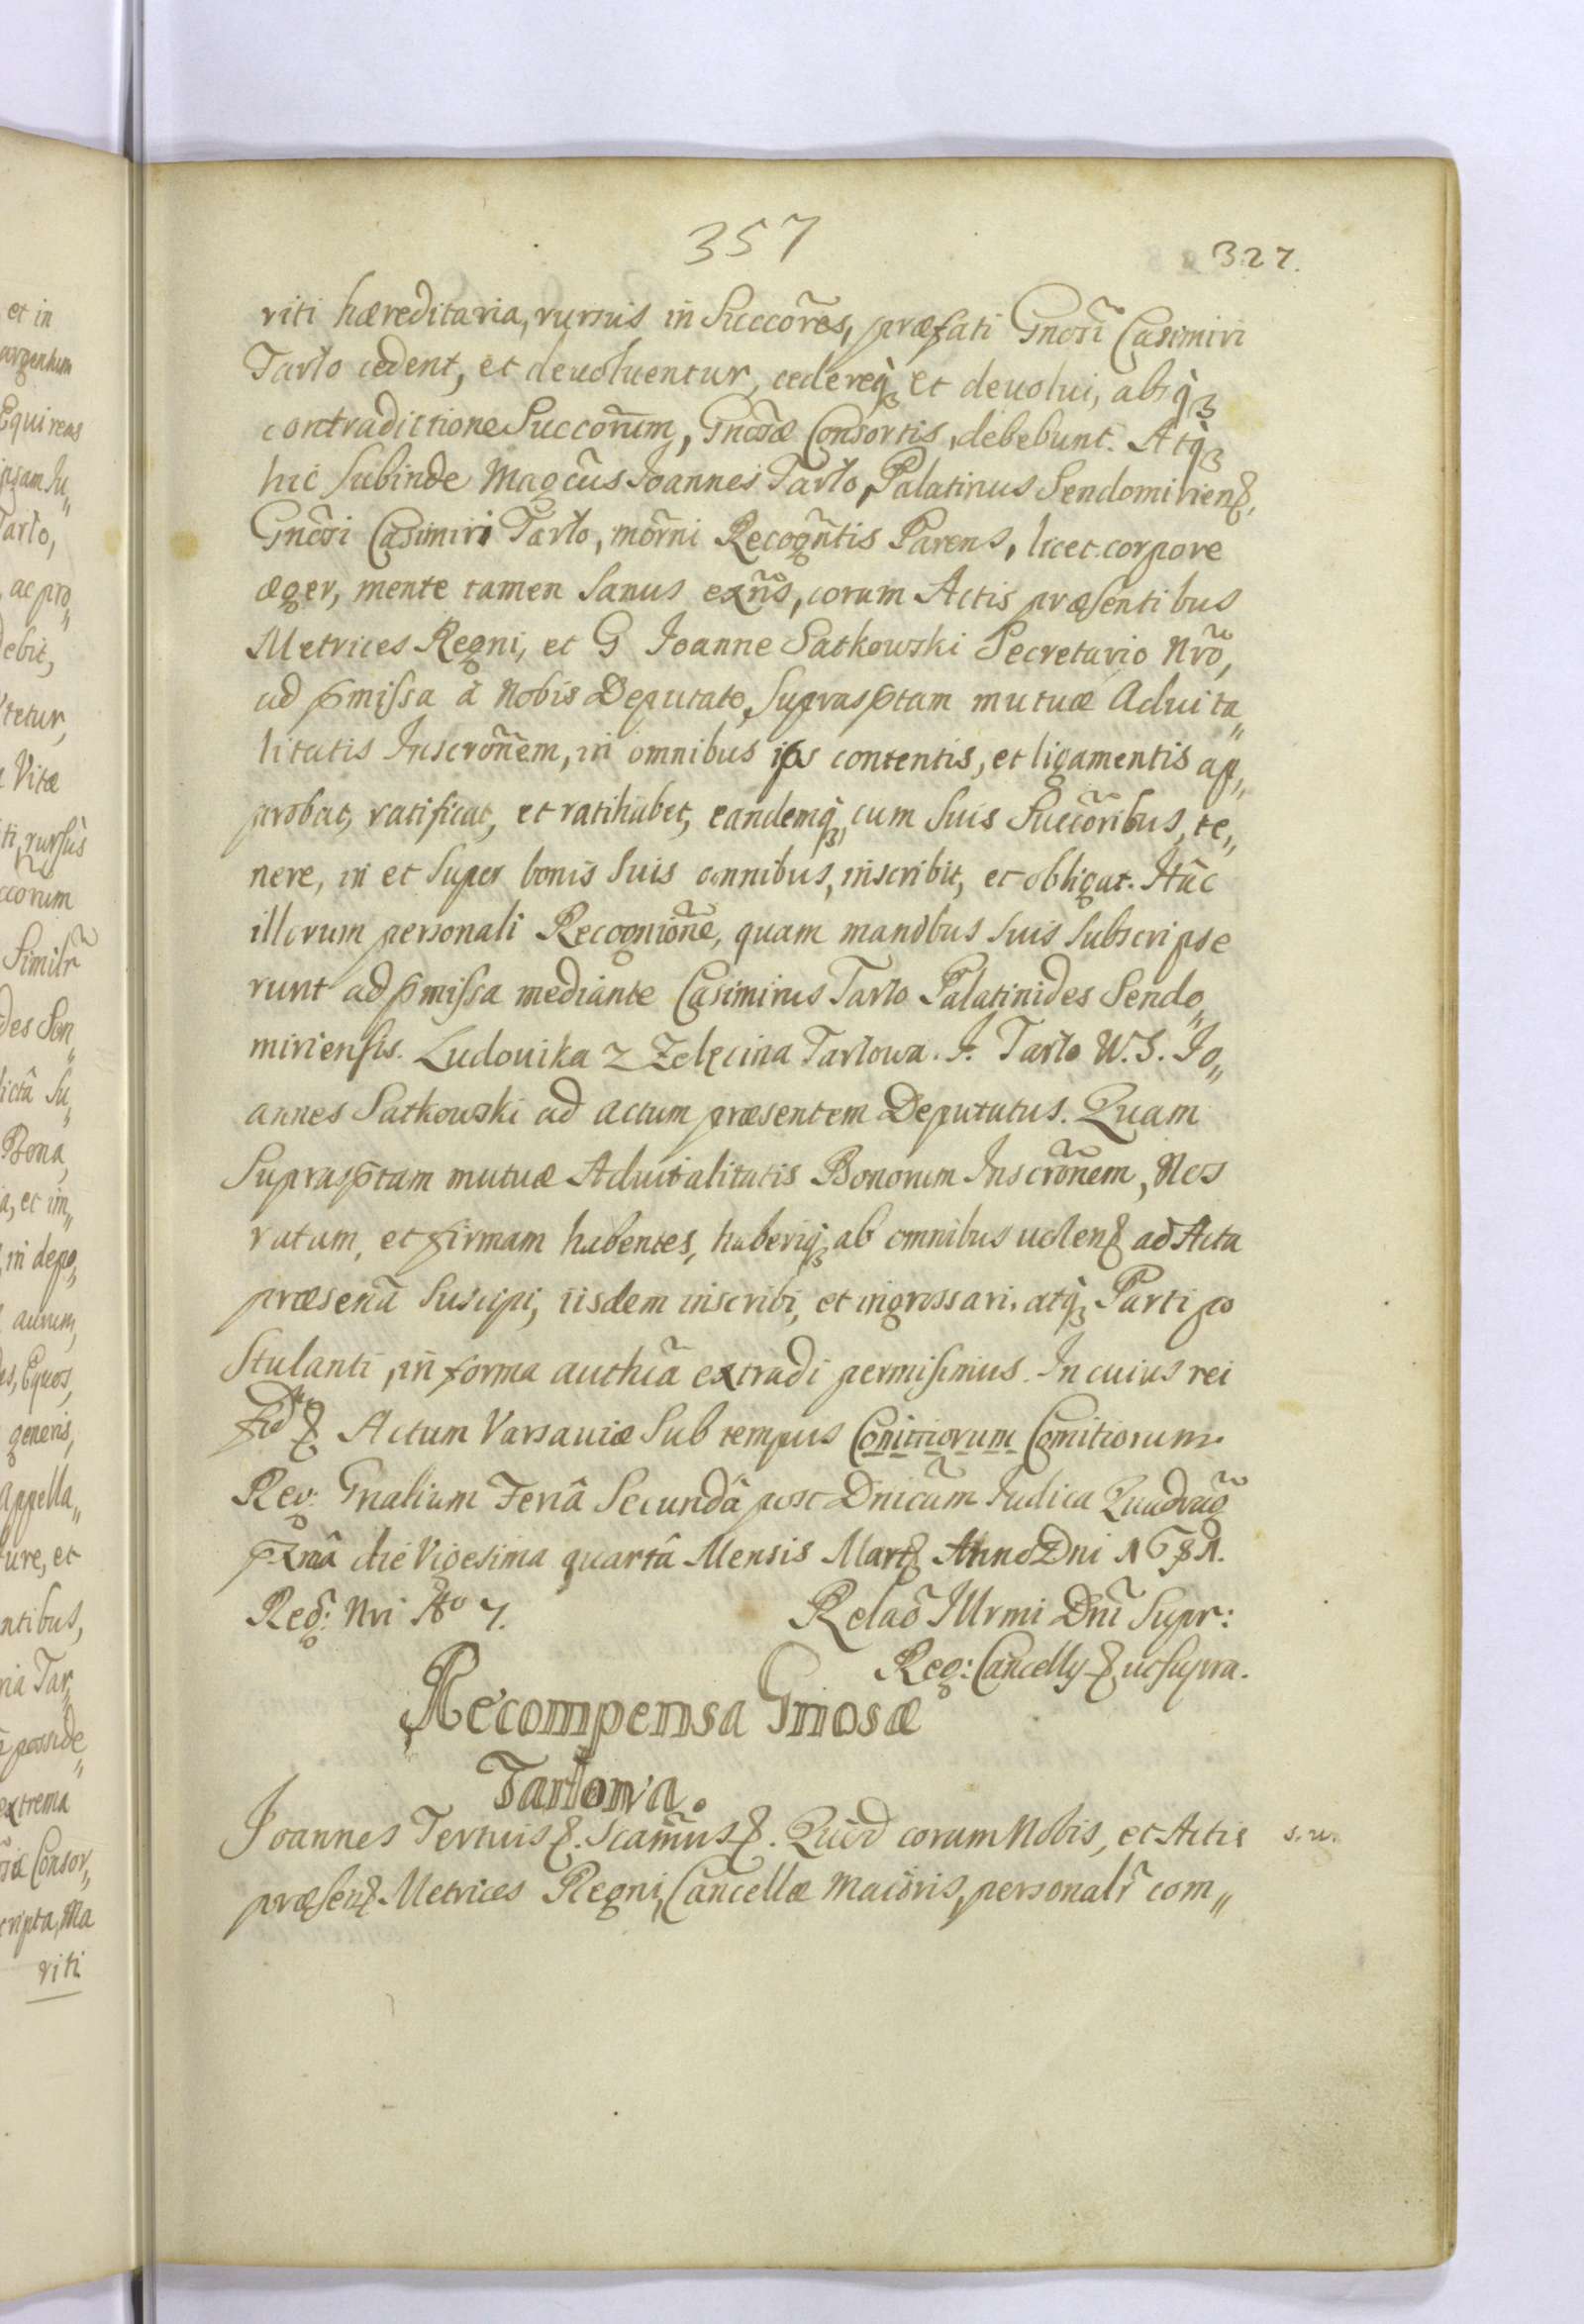 357
327.
riti hæreditaria, rursus in Succõres, præfati Gnosĩ Casimiri
Tarło cedent, et deuoluentur, cedereq̃ et deuolui, absq̃
contradictione Succorũm, Gnosæ Consortis, debebunt. Atq̃
hic Subinde Magcũs Joannes Tarło, Palatinus Sendomiriens,
Gnõsi Casimiri Tarło, mõrni Recogñtis Parens, licet corpore
æger, mente tamen Sanus exñs, coram Actis præsentibus
Metrices Regni, et G Joanne Satkowski Secretario Nrõ,
ad p̃missa à Nobis Deputato, Suprasp̃tam mutuæ Aduita„
litatis Inscronẽm, in omnibus ips contentis, et ligamentis ap„
probat, ratificat, et ratihabet, eandemq̃, cum Suis Succõribus, te„
nere, in et Super bonis Suis omnibus, inscribit, et obligat. Hâc
illorum personali Recognionẽ, quam manibus suis Subscripse
runt ad p̃missa mediante Casimirus Tarło Palatinides Sendo„
miriensis. Ludouika z Zelęcina Tarłowa. J. Tarło W. S. Jo„
annes Satkowski ad actum præsentem Deputatus. Quam
Suprasp̃tam mutuæ Aduitalitatis Bonorum Inscrõnem, Nos
ratam, et firmam habentes, haberiq̃ ab omnibus uolens ad Acta
præsenã Suscipi, iisdem inscribi, et ingrossari, atq̃ Parti po
Stulanti, in forma authcã extradi permisimus. In cuius rei
Actum Varsauiæ Sub tempus Comitiorum Comitiorum
Reg: Gnalium Feriâ Secundâ post Dnicãm Judica Quadrag̃
die Vigesima quartâ Mensis Mart Anno Dni 1681.
Reg: Nri Ao 7.
Relaõ Illrmi Dnĩ Supr:
Reg: Cancelly ut supra.
Recompensa Gnosæ
Tarłowa.
Joannes Tertius. Scamũs. Quod coram Nobis, et Actis
s. w.
præsen Metrices Regni, Cancellæ Maioris, personalr̃ com„